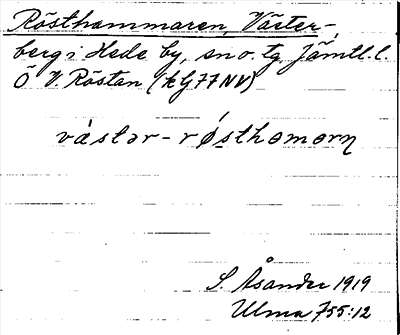 Rösthammaren, Väster-,
berg i Hede by, sn o. tg Jämtl. l.
Ö V. Röstan (kG77NV)
västər-rø̀sthamarn
S. Åsander 1919
Ulma 755:12